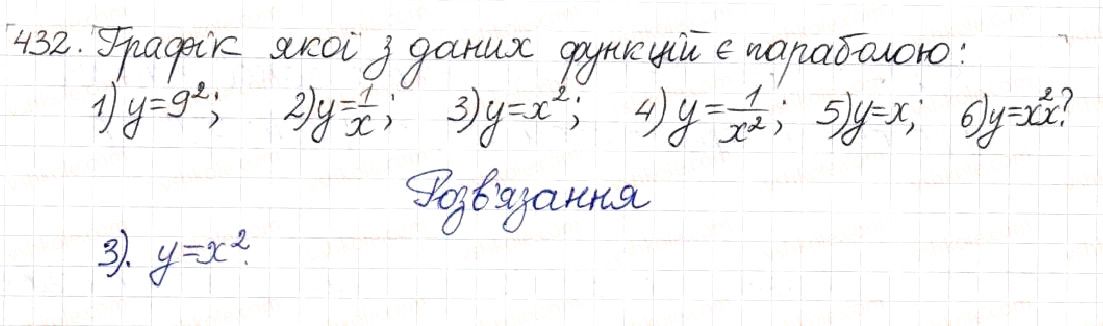 432. Графік якої з даних функцій є параболою:
1) y=9²; 2) y=1/x; 3) y=x²; 4) y=1/x²; 5) y=x; 6) y=x²x?
Розв'язання
3). y=x².